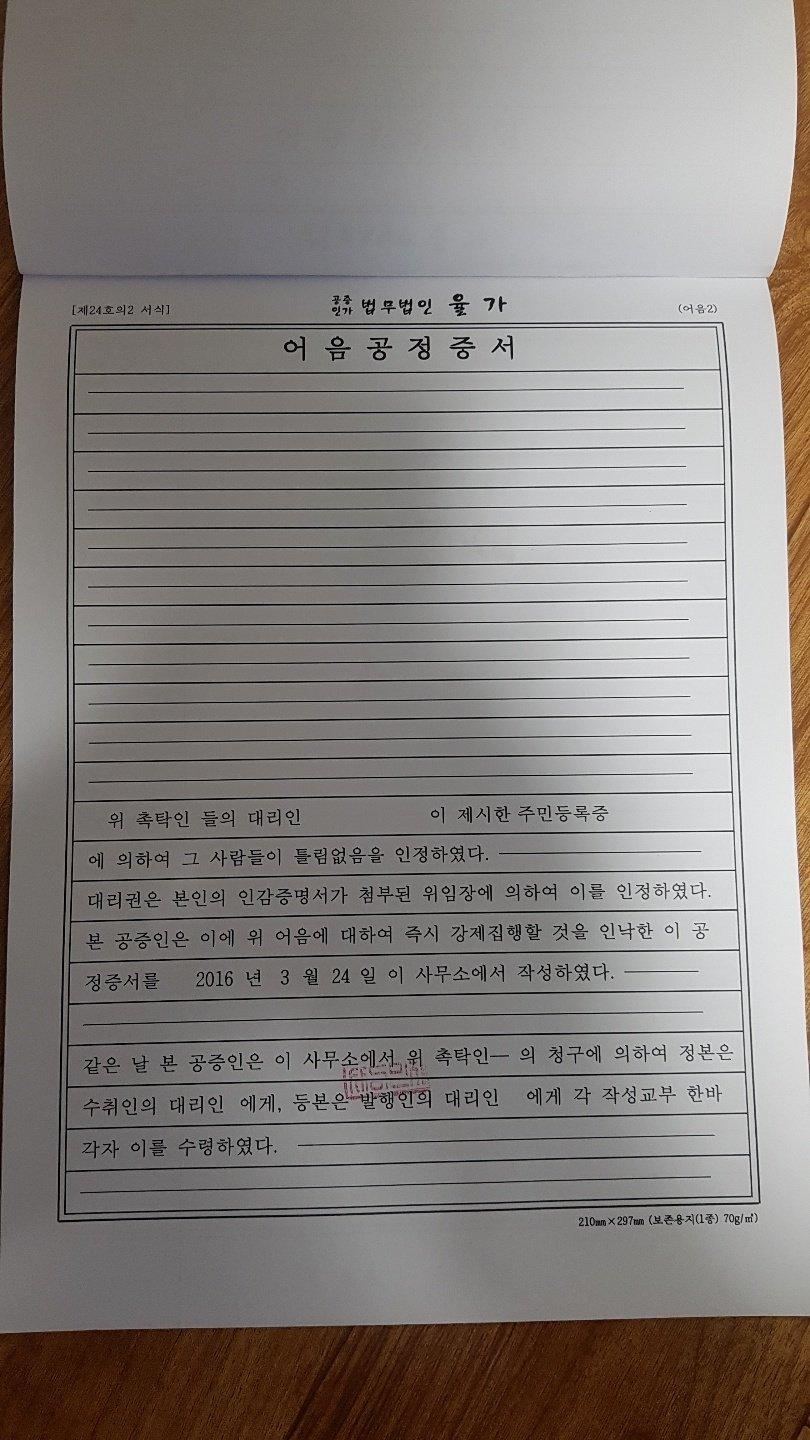 [제24호의2 서식]
공증인가 법무법인 율가
(어음2)
어음공정증서
위 촉탁인 들의 대리인 이 제시한 주민등록증
에 의하여 그 사람들이 틀림없음을 인정하였다.
대리권은 본인의 인감증명서가 첨부된 위임장에 의하여 이를 인정하였다.
본 공증인은 이에 위 어음에 대하여 즉시 강제집행할 것을 인낙한 이 공
정증서를 2016 년 3 월 24 일 이 사무소에서 작성하였다.
같은 날 본 공증인은 이 사무소에서 위 촉탁인 의 청구에 의하여 정본은
수취인의 대리인 에게, 등본은 발행인의 대리인 에게 각 작성교부 한바
각자 이를 수령하였다.
210㎜×297㎜ (보존용지(1종) 70g/㎡)